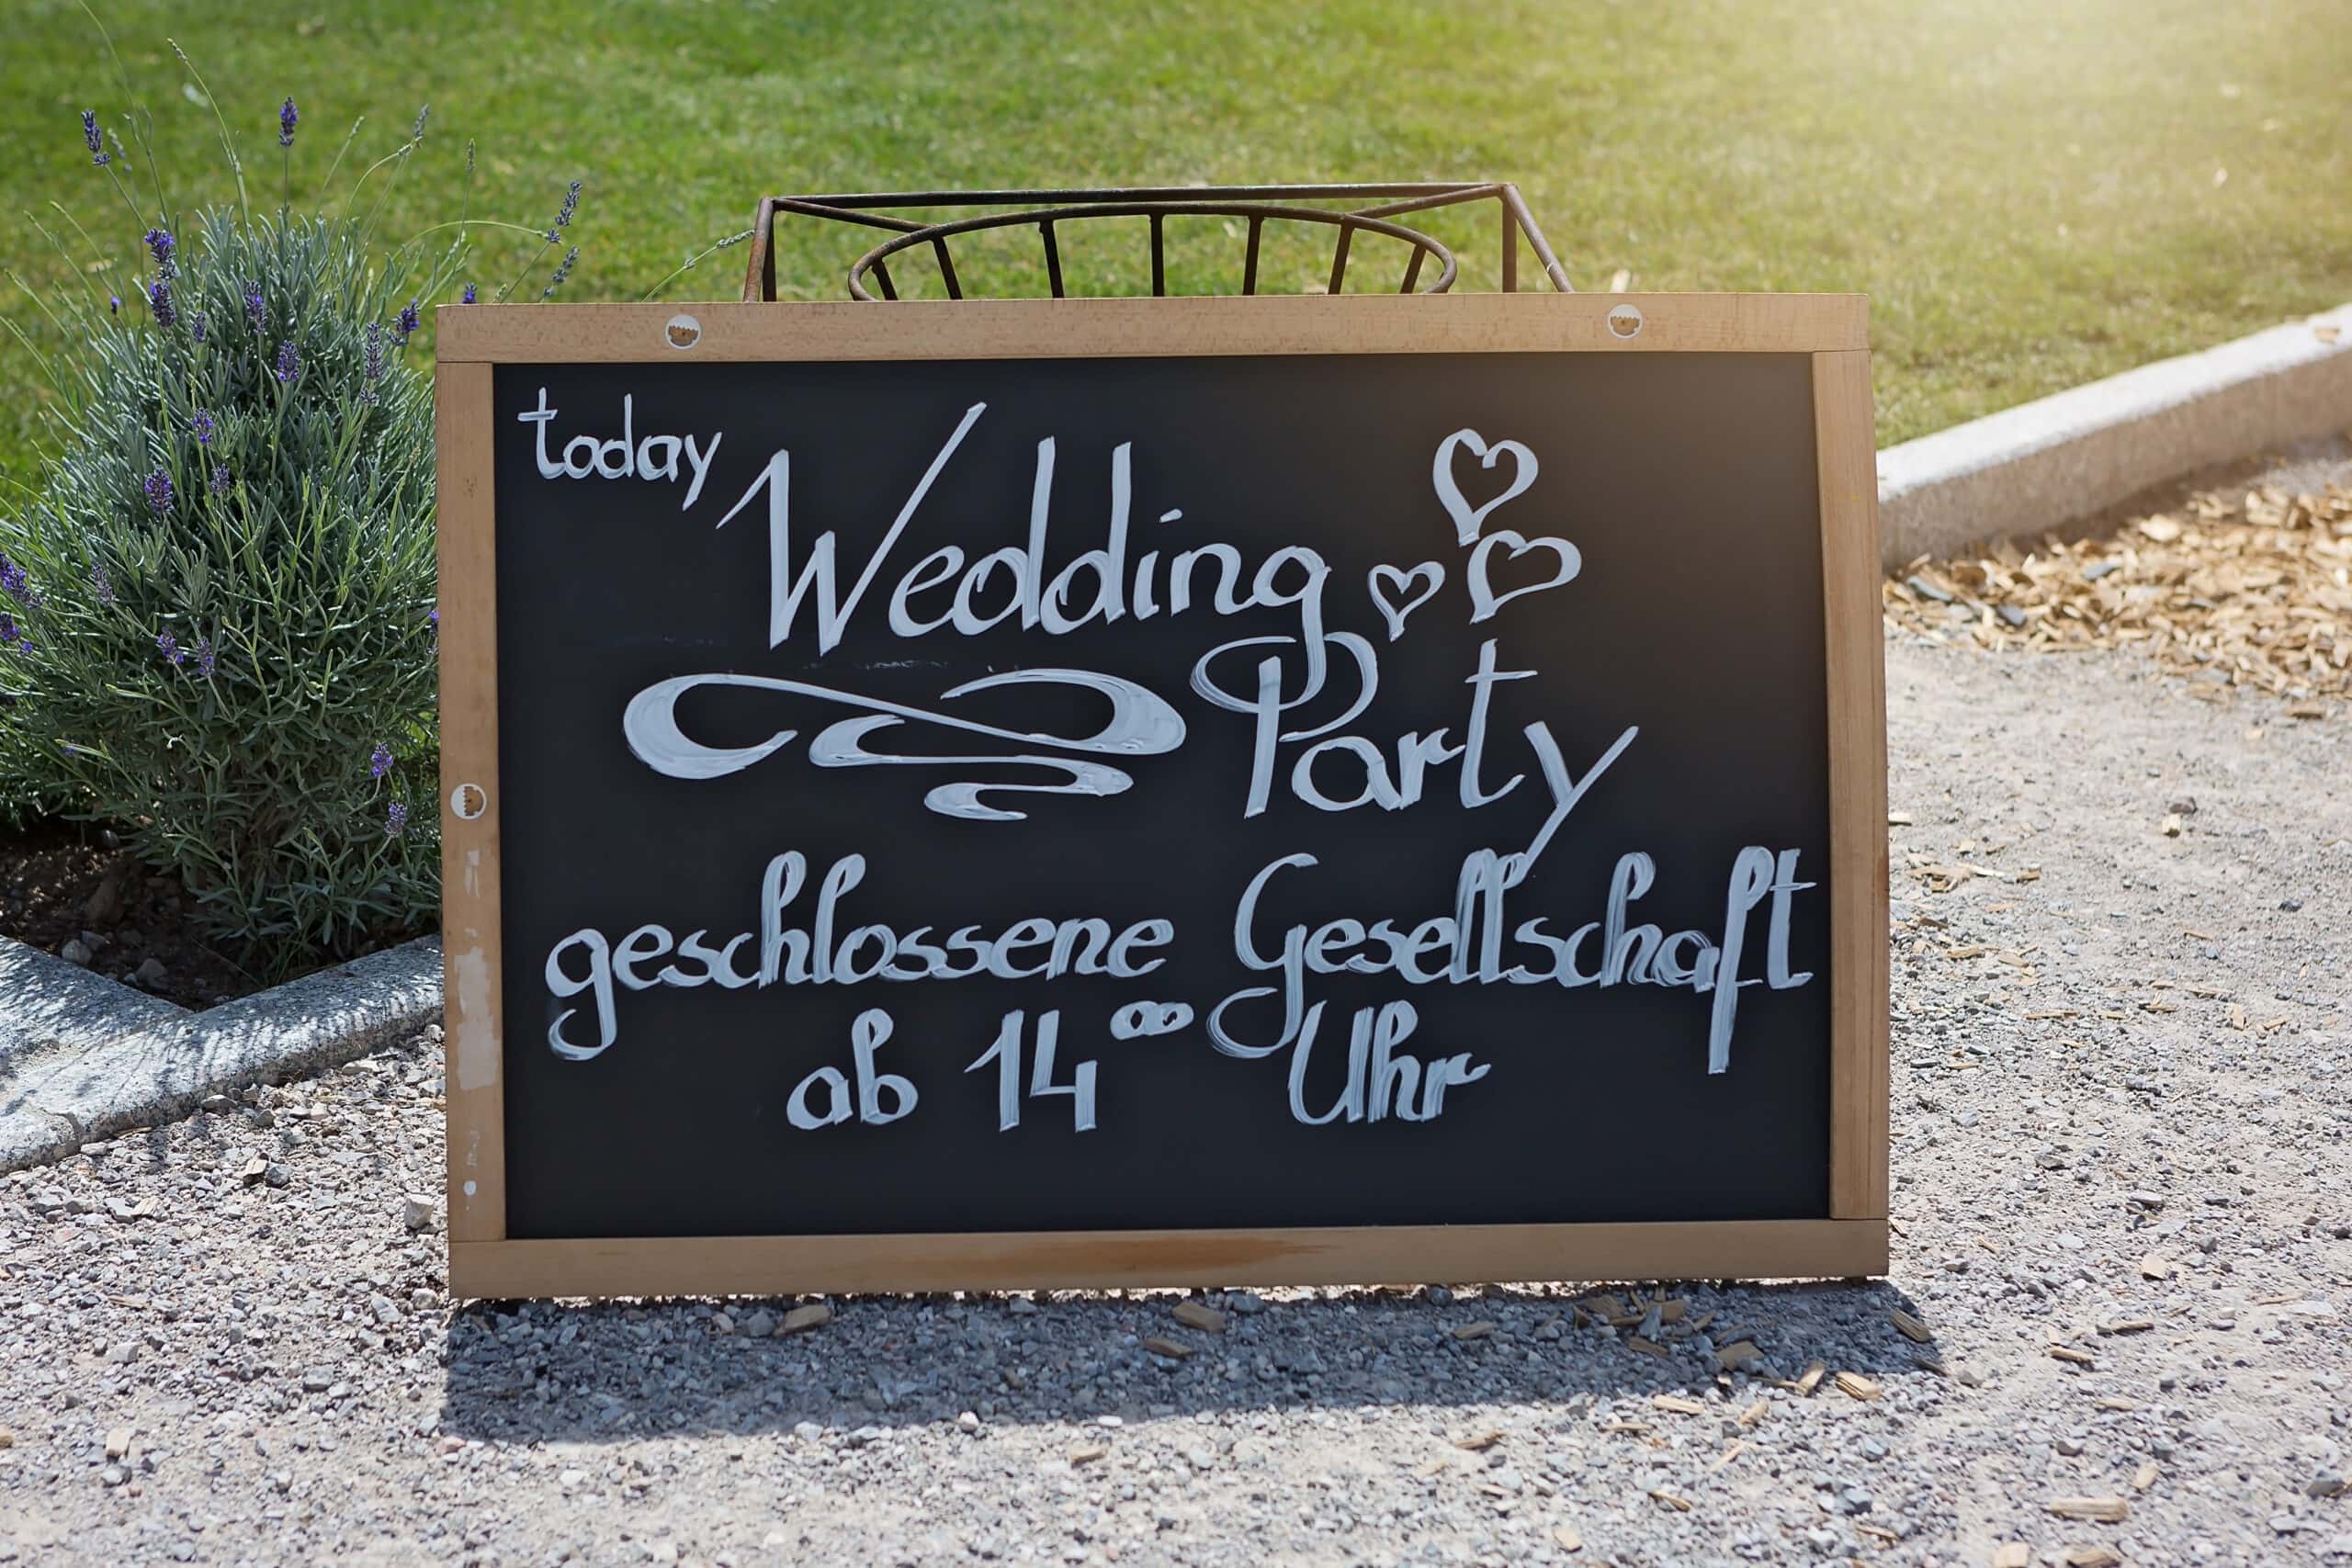 today Wedding
Party
geschlossene Gesellschaft
ab 14⁰⁰ Uhr